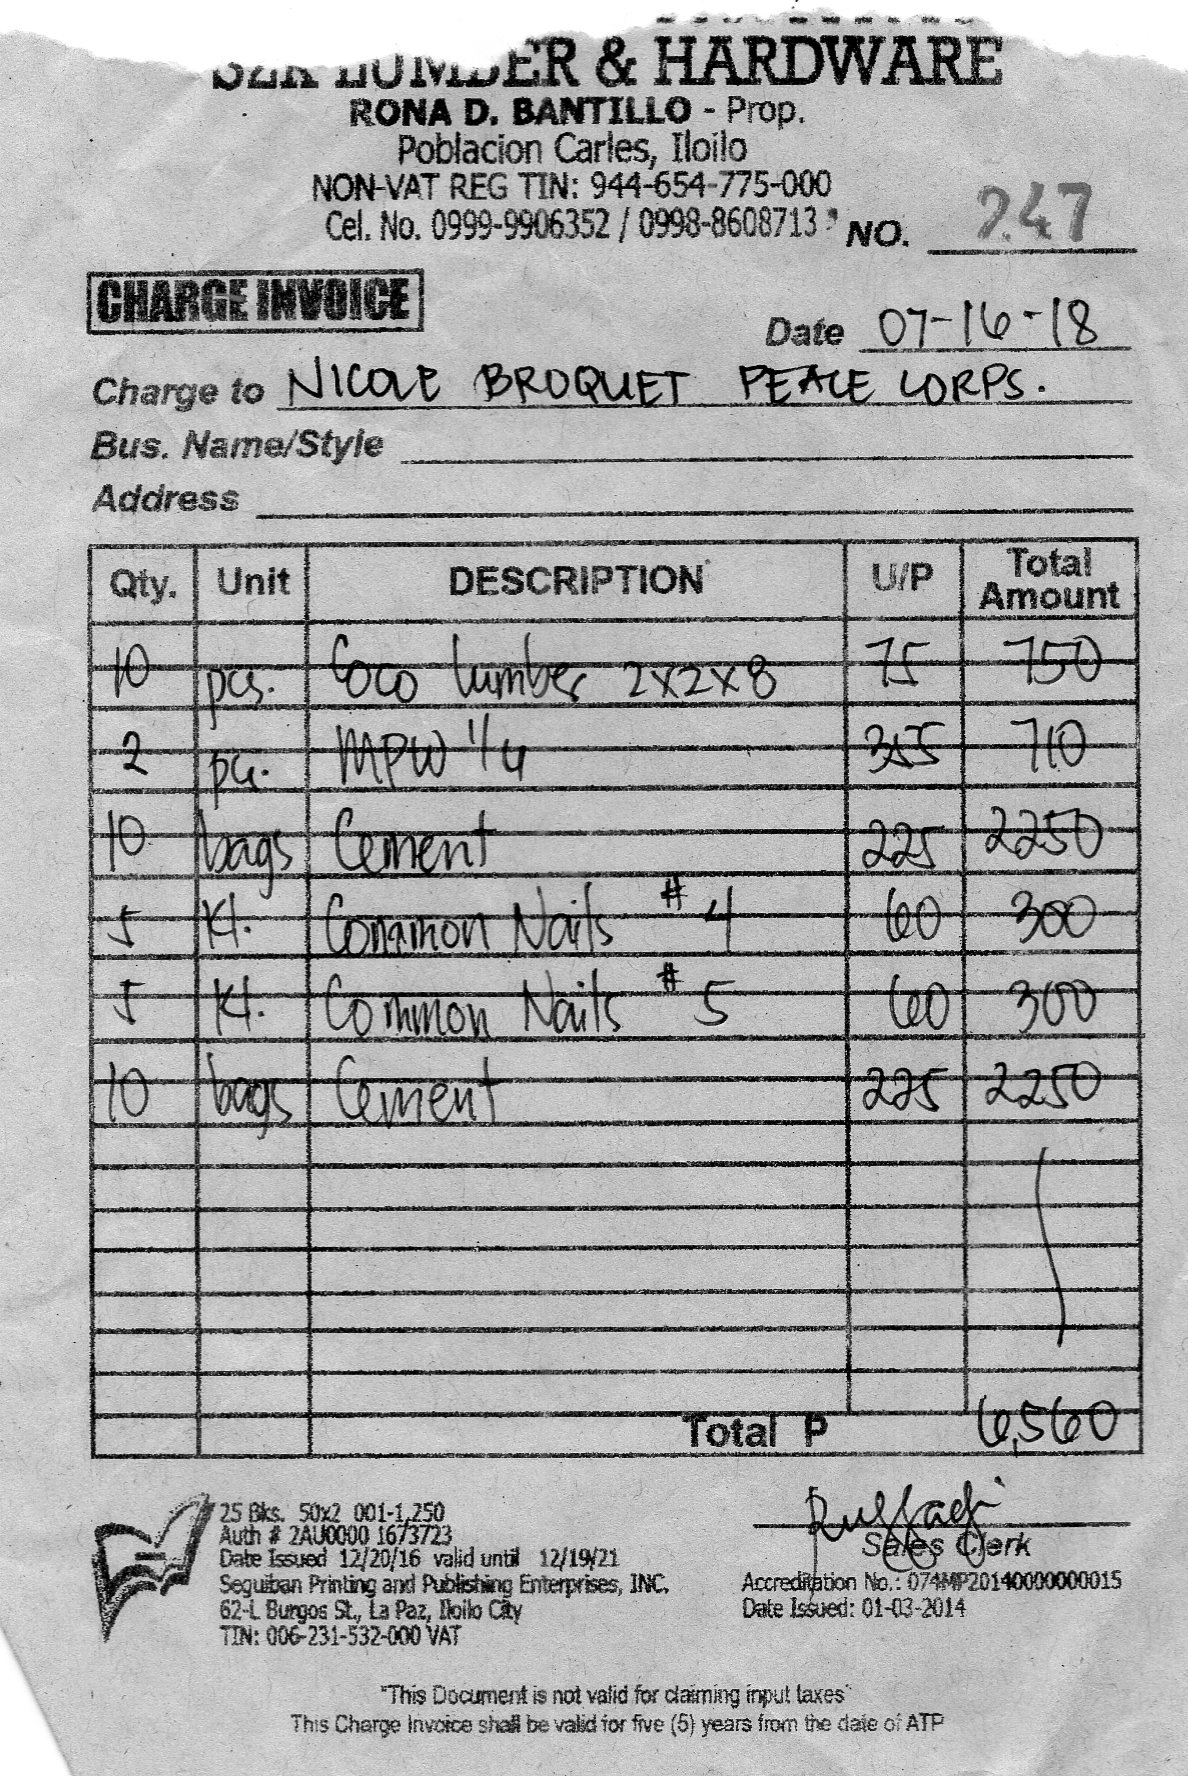 LUMBER & HARDWARE
RONA D. BANTILLO - Prop.
Poblacion Carles, Iloilo
NON-VAT REG TIN: 944-654-775-000
Cel. No. 0999-9906352 / 0998-8608713
NO. 247
CHARGE INVOICE
Date 07-16-18
Charge to NICOLE BROQUET PEACE CORPS.
Bus. Name/Style
Address
Qty. Unit DESCRIPTION U/P Total Amount
10 pcs. Coco lumber 2x2x8 75 750
2 pc. MPW 1/4 355 710
10 bags Cement 225 2250
5 Kl. Common Nails #4 60 300
5 Kl. Common Nails #5 60 300
10 bags Cement 225 2250
Total P 6,560
25 Bks. 50x2 001-1,250
Auth # 2AU0000 1673723
Date Issued 12/20/16 valid until 12/19/21
Seguiban Printing and Publishing Enterprises, INC.
62-L Burgos St., La Paz, Iloilo City
TIN: 006-231-532-000 VAT
Sales Clerk
Accreditation No.: 074MP20140000000015
Date Issued: 01-03-2014
"This Document is not valid for claiming input taxes"
This Charge Invoice shall be valid for five (5) years from the date of ATP